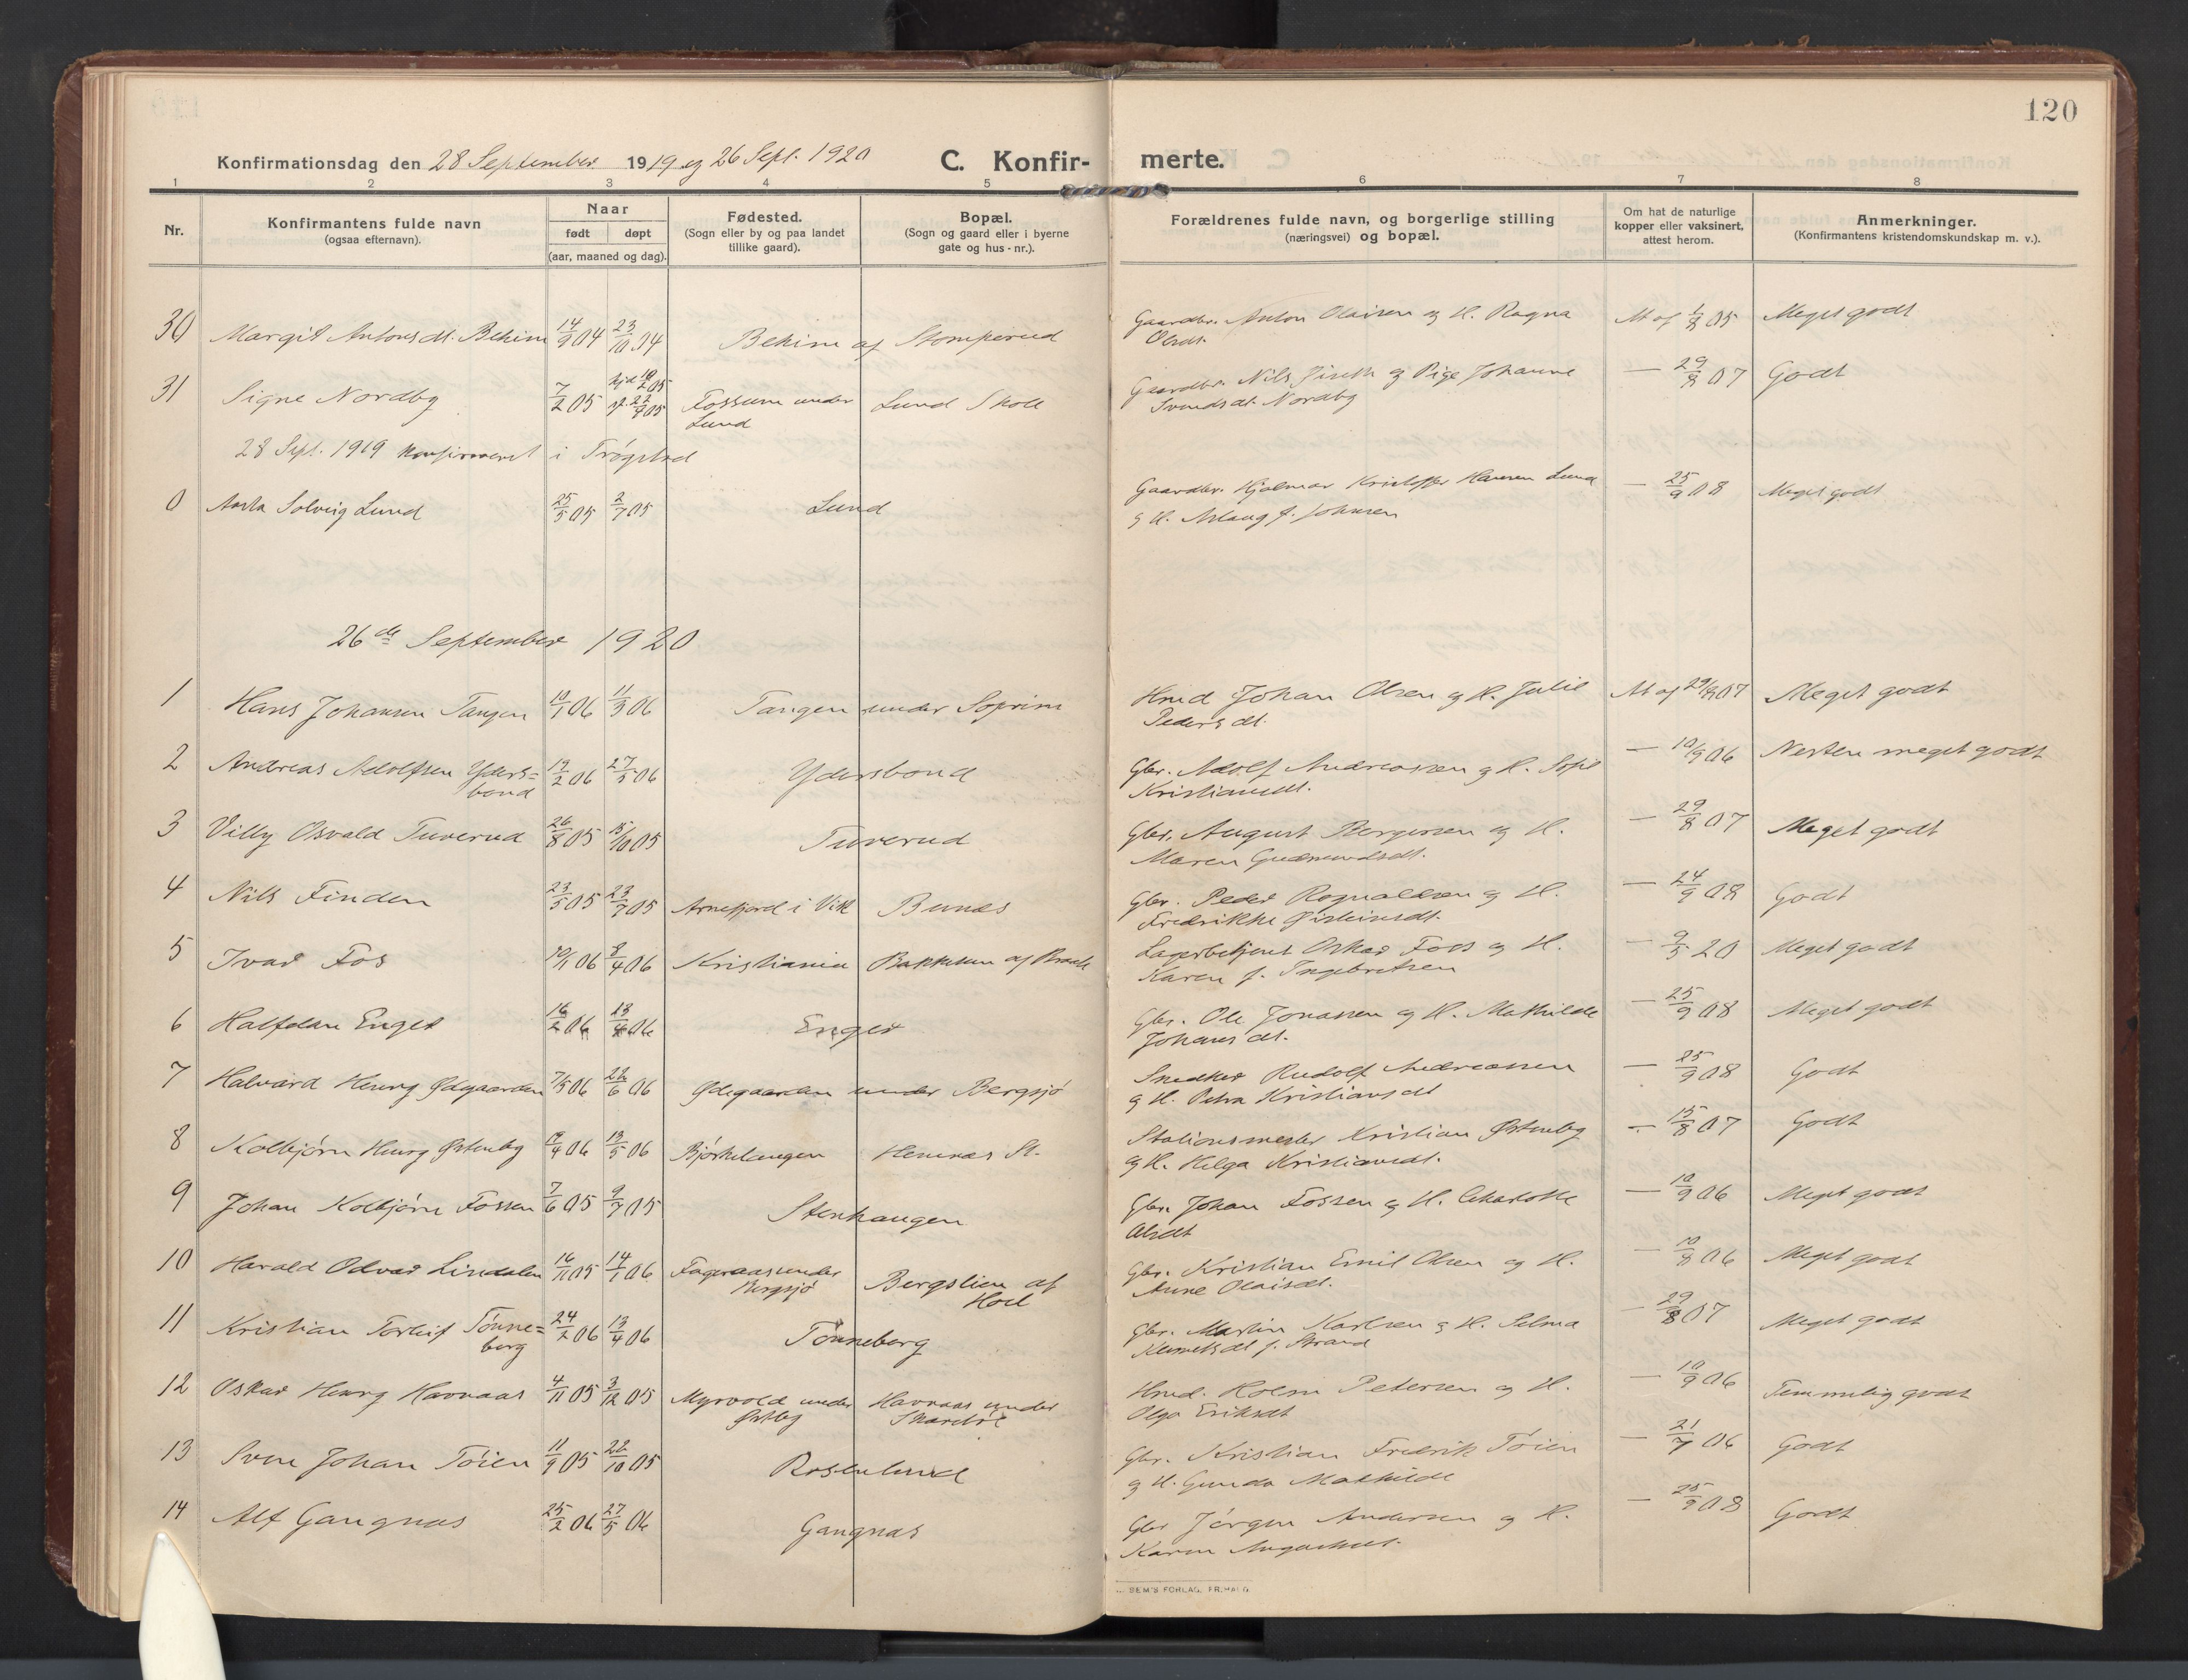 120
Konfirmationsdag den 28 September 1919 og 26 Sept. 1920 C. Konfir- merte.
1 2 3 4 5 6 7 8
Nr.
Konfirmantens fulde navn
(ogsaa efternavn).
Naar
født døpt
(aar, maaned og dag).
Fødested.
(Sogn eller by og paa landet
tillike gaard).
Bopæl.
(Sogn og gaard eller i byerne
gate og hus-nr.).
Forældrenes fulde navn, og borgerlige stilling
(næringsvei) og bopæl.
Om hat de naturlige
kopper eller vaksinert,
attest herom.
Anmerkninger.
(Konfirmantens kristendomskundskap m. v.).
30 Margit Antonsdt. Behim 14/9 04 23/10 04 Behim af Stomperud Gaardbr. Anton Olaisen og H. Ragna At af 1/8 05 Meget godt
Olsdt.
31 Signe Nordby 7/2 05 Fossum under Lund Skole Gaardbr. Nils og Pige Johanne — 29/8 07 Godt
Lund Svendsdt. Nordby
28 Sept. 1919 Konfirmeret i Trøgstad
0 Asta Solveig Lund 25/5 05 2/7 05 Lund Gaardbr. Hjalmar Kristoffer Hansen Lund — 25/9 08 Meget godt
og H. Aslaug f. Johnsen
26de September 1920
1 Hans Johansen Tangen 10/1 06 11/3 06 Tangen under Soprim Hmd Johan Olsen og H. Julie At af 29/8 07 Meget godt
Pedersdt.
2 Andreas Adolfsen Yders= 19/2 06 27/5 06 Ydersbond Gbr. Adolf Andreassen og H. Sofie — 10/9 06 Nesten meget godt
bond Kristiansdt.
3 Villy Osvald Tuverud 26/8 05 15/10 05 Tuverud Gbr. August Bergersen og H. — 29/8 07 Meget godt
Maren Gudmundsdt.
4 Nils Finden 23/5 05 23/7 05 Arnefjord i Vik Bunes Gbr. Peder Rognaldsen og H. — 24/9 08 Godt
Fredrikke Øisteinsdt.
5 Ivar Fos 10/1 06 8/4 06 Kristiania Bakketun af Lagerbetjent Oskar Foss og H. — 9/5 20 Meget godt
Karen f. Ingebretsen
6 Halfdan Enger 16/2 06 13/4 06 Enger Gbr. Ole Jonassen og H. Mathilde — 25/9 08 Meget godt
Johansdt.
7 Halvard Henry Ødegaarden 7/5 06 22/6 06 Ødegaarden under Bergsjø Snedker Rudolf Andreassen — 25/9 08 Godt
og H. Petra Kristiansdt
8 Kolbjørn Henry Østenby 19/4 06 13/5 06 Bjørkelangen Hemnæs St. Stationsmester Kristian Østenby — 15/8 07 Godt
og H. Helga Kristiansdt.
9 Johan Kolbjørn Fossen 7/6 05 9/7 05 Stenhaugen Gbr. Johan Fossen og H. Charlotte — 10/9 06 Meget godt
Olsdt
10 Harald Odvar Lindalen 16/11 05 14/1 06 Fageraas under Bergslien af Gbr. Kristian Emil Olsen og H. — 10/8 06 Meget godt
Bergsjø Hoel Anne Olaisdt.
11 Kristian Torleif Tønne= 24/2 06 13/4 06 Tønneberg Gbr. Martin Karlsen og H. Selma — 29/8 07 Meget godt
berg f. Strand
12 Oskar Henry Havnaas 4/11 05 3/12 05 Myrvold under Havnaas under Hmd. Holm Petersen og H. — 10/9 06 Temmelig godt
Østby Olga Eriksdt
13 Sven Johan Tøien 11/9 05 22/10 05 Rosenlund Gbr. Kristian Fredrik Tøien — 21/7 06 Godt
og H. Gunda Mathilde
14 Alf Gangnæs 25/2 06 27/5 06 Gangnæs Gbr Jørgen Andersen og H. — 25/9 08 Godt
Karen
SEM'S FORLAG, FR.HALD